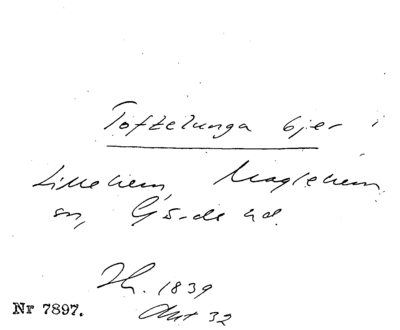 Toftelunga bjer
Lillehem, Maglehem
sn, Gärds hd.
Th. 1839
Akt 32
Nr 7897.